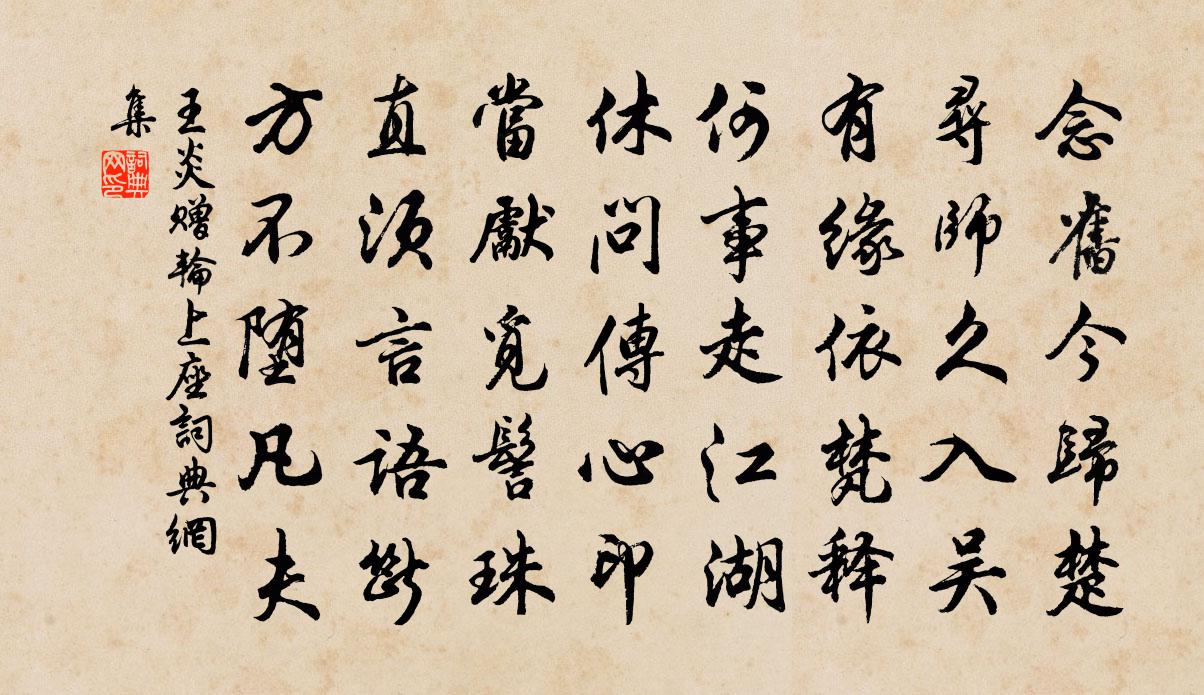 念舊今歸楚
尋師久入吴
有緣依梵释
何事走江湖
休問傳心印
當獻覓髻珠
直須言語斷
方不堕凡夫
王炎赠輪上座詞典網
集
詞典网印